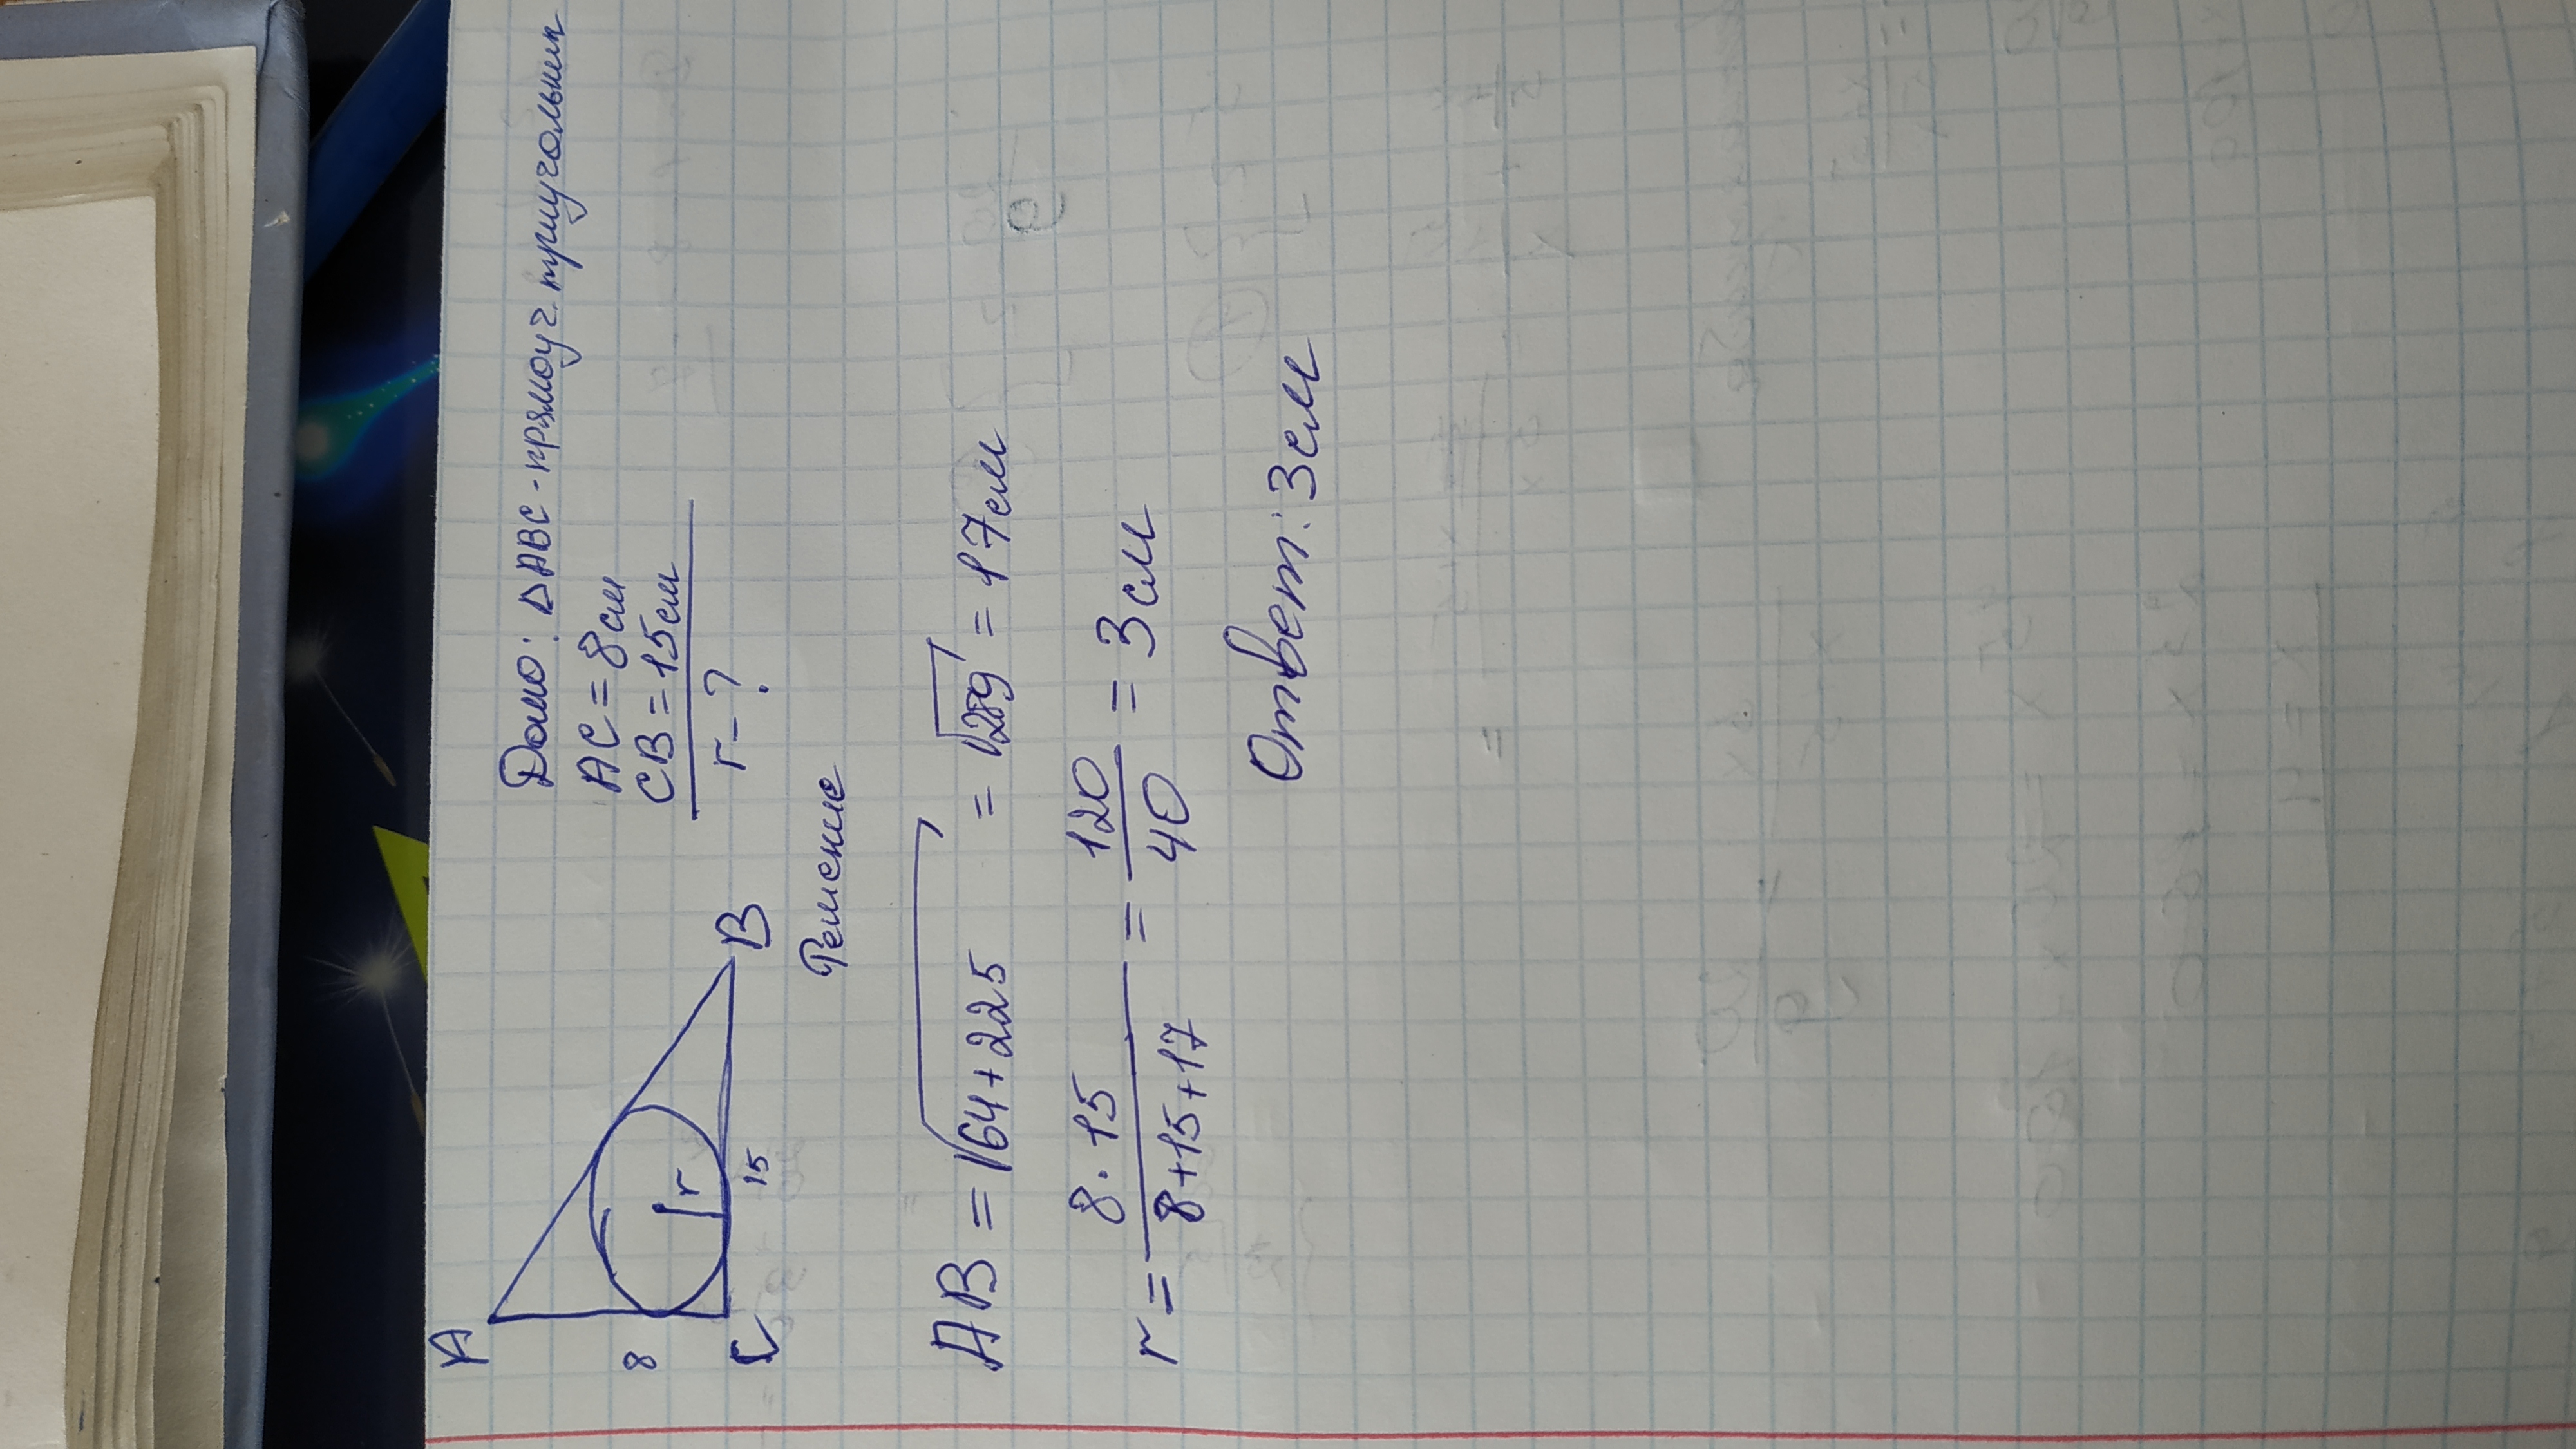 A
8
C
r
15
B
Дано: △ABC - прямоуг. триугольник
AC = 8см
CB = 15см
r - ?
Решение
AB = √64+225 = √289 = 17см
r = 8·15 / 8+15+17 = 120 / 40 = 3 см
Ответ: 3см